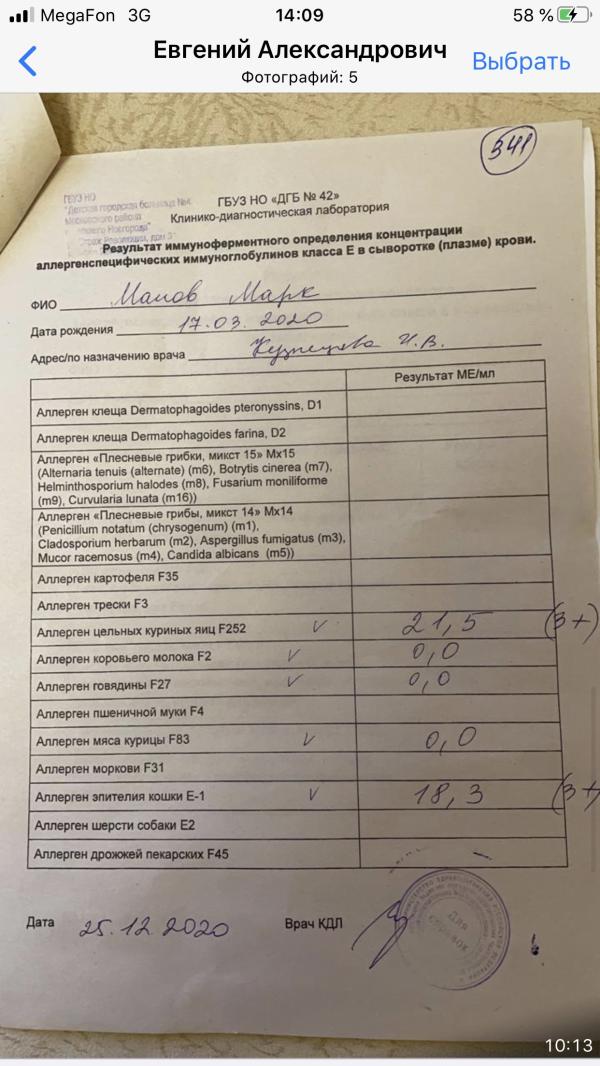 MegaFon 3G 14:09 58 %
Евгений Александрович
Фотографий: 5
Выбрать
341
ГБУЗ НО
"Детская городская больница №4
Московского района
Нижнего Новгорода"
ГБУЗ НО «ДГБ № 42»
Клинико-диагностическая лаборатория
Результат иммуноферментного определения концентрации
аллергенспецифических иммуноглобулинов класса Е в сыворотке (плазме) крови.
ФИО Марк
Дата рождения 17.03.2020
Адрес/по назначению врача Кузнецова И.В.
Результат МЕ/мл
Аллерген клеща Dermatophagoides pteronyssins, D1
Аллерген клеща Dermatophagoides farina, D2
Аллерген «Плесневые грибки, микст 15» Mx15
(Alternaria tenuis (alternate) (m6), Botrytis cinerea (m7),
Helminthosporium halodes (m8), Fusarium moniliforme
(m9), Curvularia lunata (m16))
Аллерген «Плесневые грибы, микст 14» Mx14
(Penicillium notatum (chrysogenum) (m1),
Cladosporium herbarum (m2), Aspergillus fumigatus (m3),
Mucor racemosus (m4), Candida albicans (m5))
Аллерген картофеля F35
Аллерген трески F3
Аллерген цельных куриных яиц F252 ✓ 21,5 (3+)
Аллерген коровьего молока F2 ✓ 0,0
Аллерген говядины F27 ✓ 0,0
Аллерген пшеничной муки F4
Аллерген мяса курицы F83 ✓ 0,0
Аллерген моркови F31
Аллерген эпителия кошки E-1 ✓ 18,3 (3+)
Аллерген шерсти собаки E2
Аллерген дрожжей пекарских F45
Дата 25.12.2020 Врач КДЛ
Для
справок
10:13